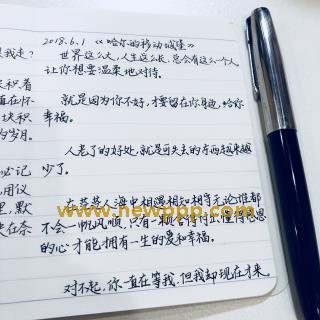 2018.6.1 《哈尔的移动城堡》
世界这么大,人生这么长,总会有这么一个人
让你想要温柔地对待。
就是因为你不好,才要留在你身边,给你
幸福。
人老了的好处,就是可失去的东西越来越
少了。
在茫茫人海中相遇相知相守无论谁都
不会一帆风顺,只有一颗舍得付出懂得感恩
的心才能拥有一生的爱和幸福。
对不起,你一直在等我,但我却现在才来。
我走?
积着
直在怀
块积
岁月。
必记
用仪
里,默
在奈
www.newppp.com